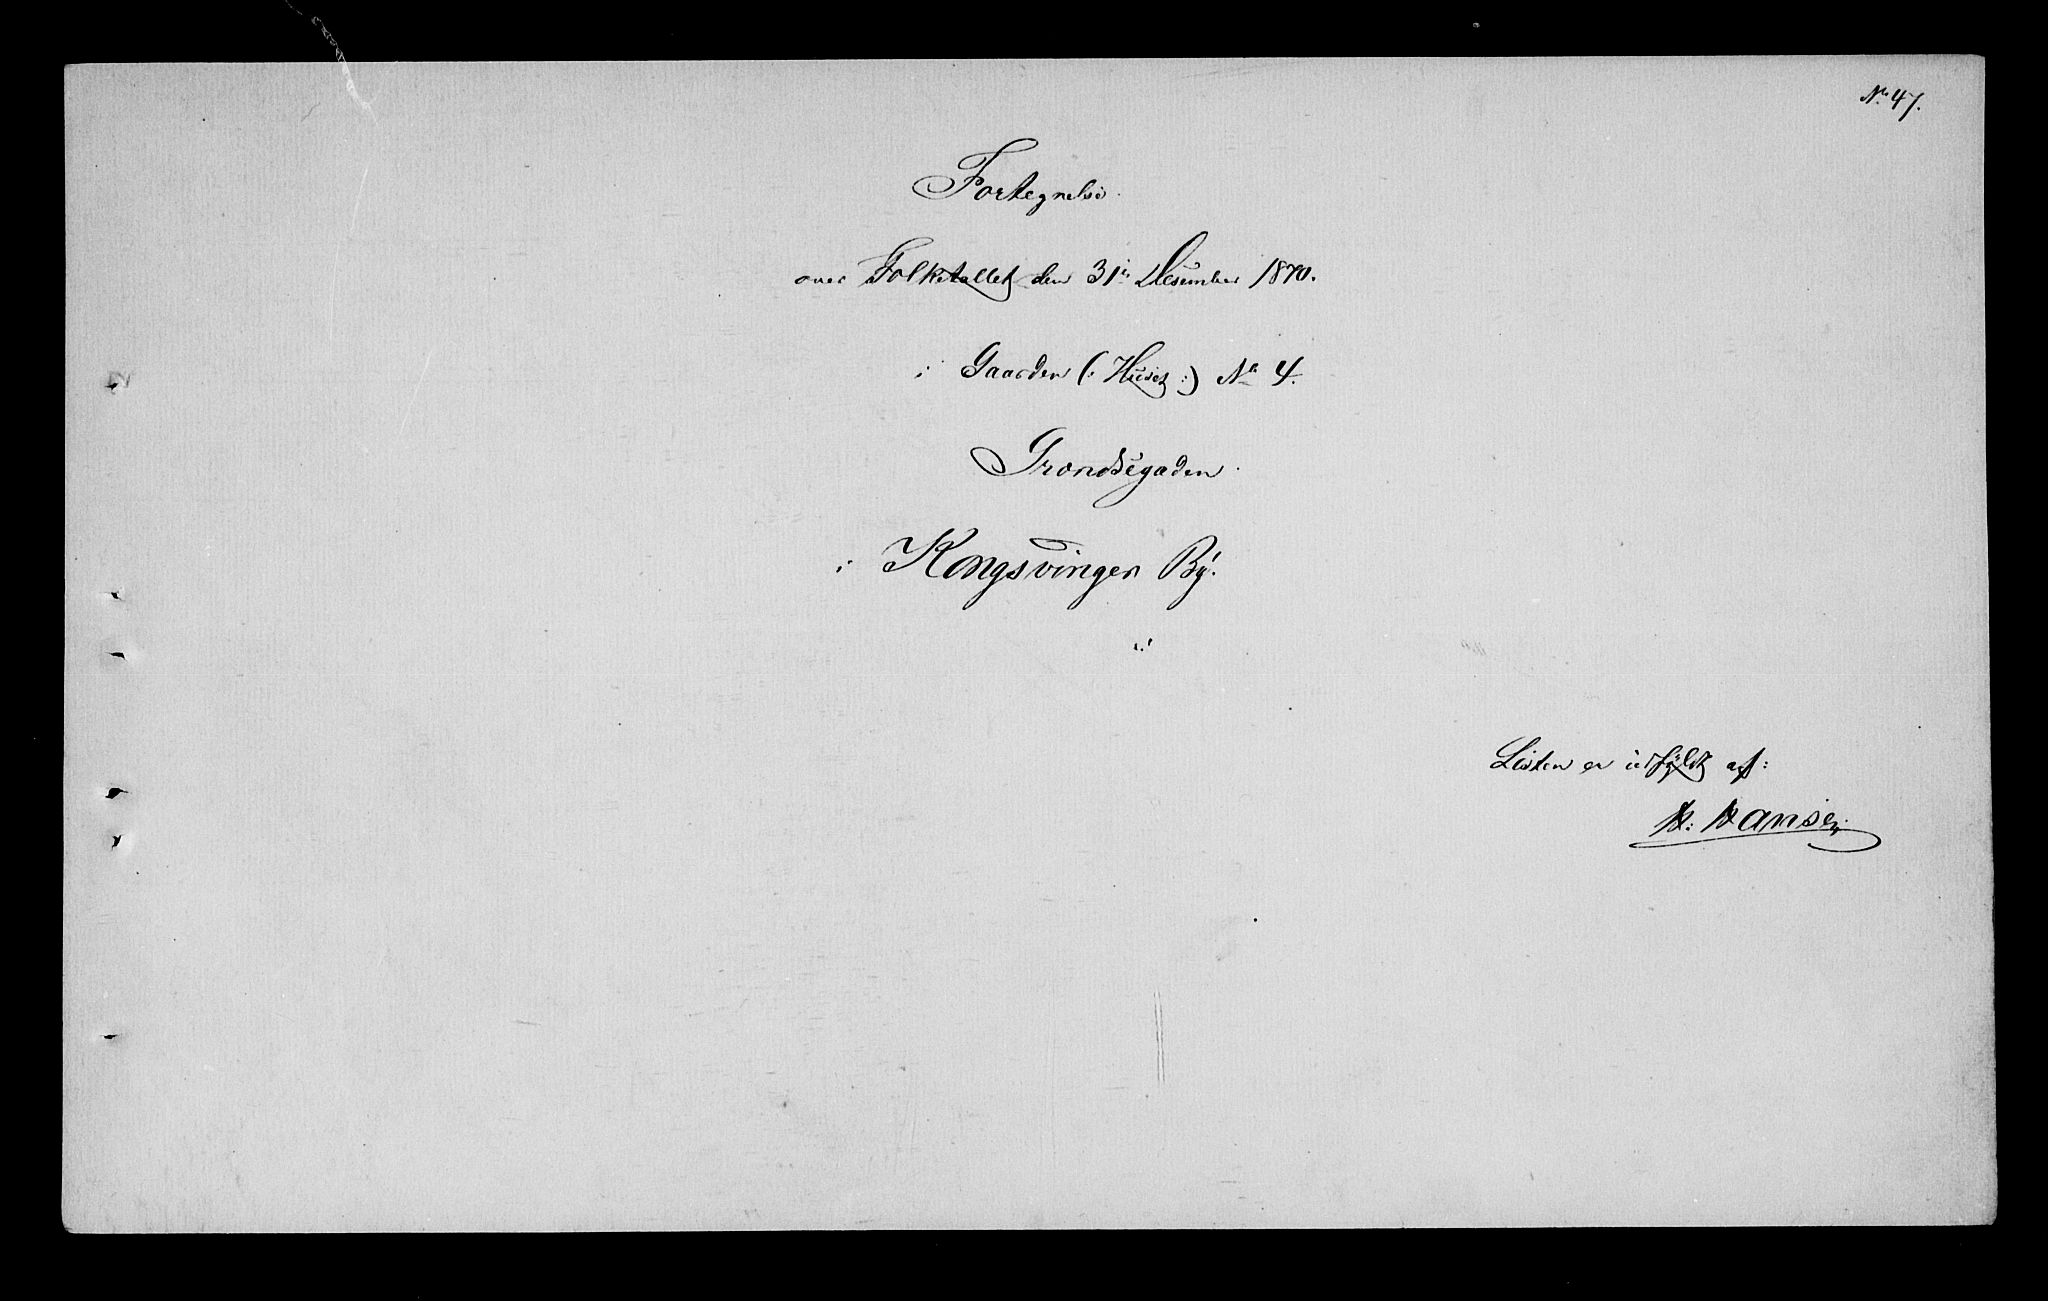 No 47.
Fortegnelse
over Folketallet den 31te Desember 1870.
i Gaarden (: Huset :) No 4.
i Kongsvinger By.
Listen er udfyldt af:
H: Hansen